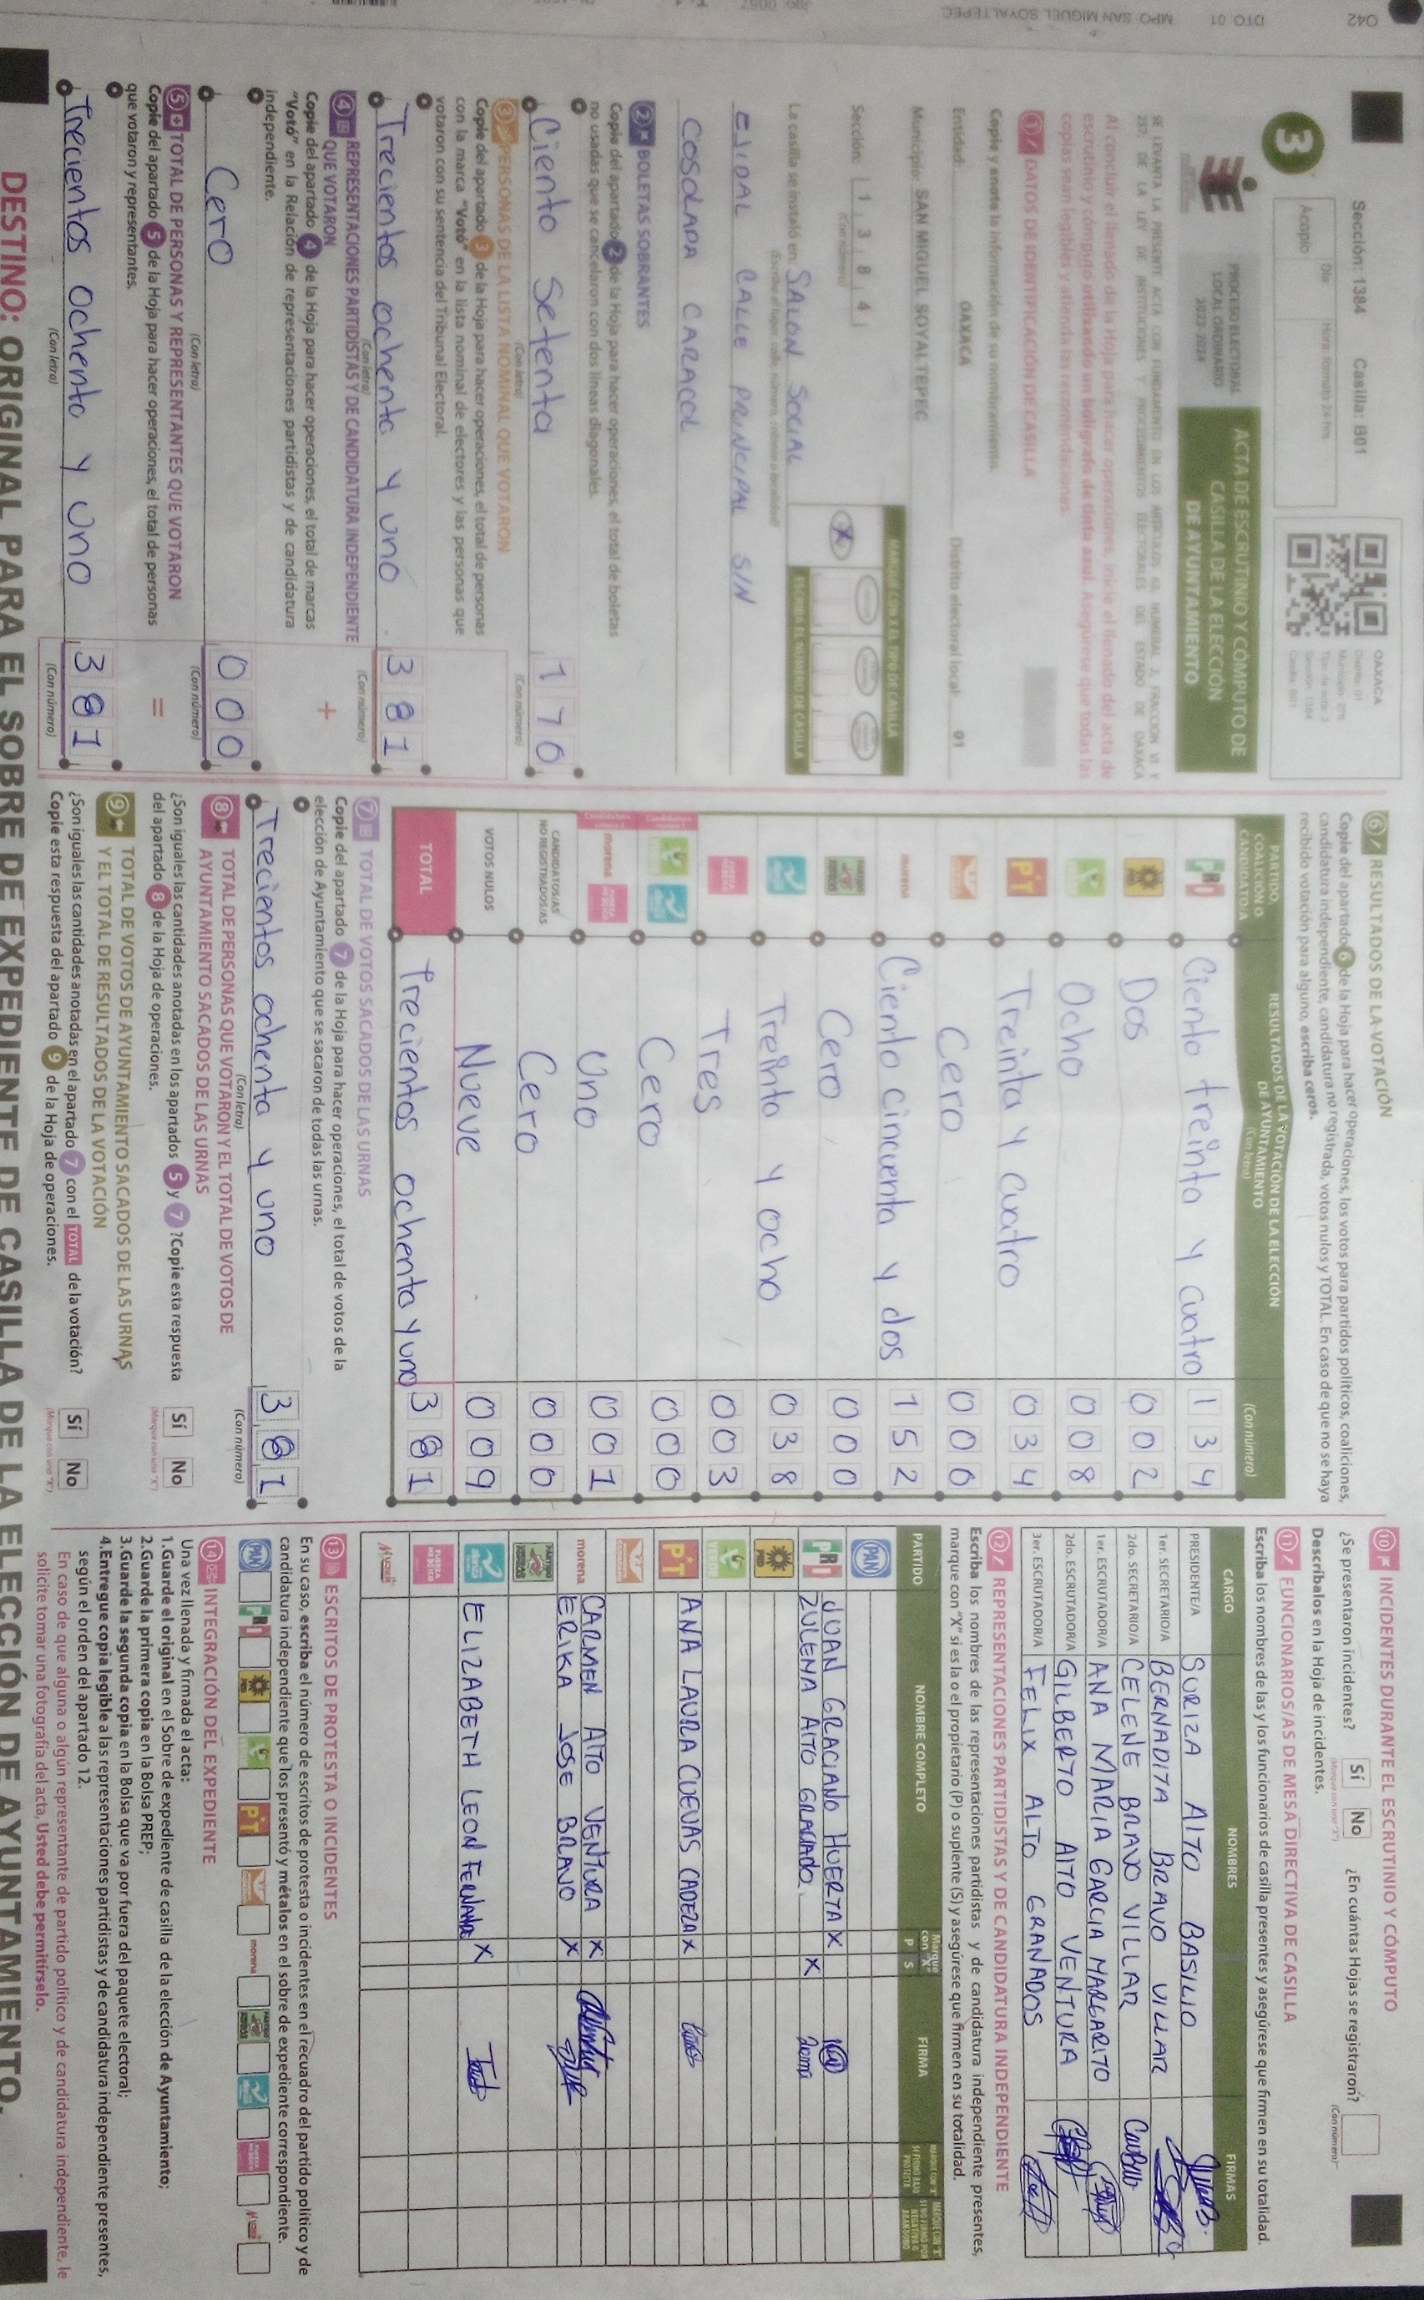 042 DTO 01 MPO. SAN MIGUEL SOYALTEPEC
Sección: 1384 Casilla: B01
3
Acopio
Día Hora: formato 24 hrs
OAXACA
PROCESO ELECTORAL
LOCAL ORDINARIO
2023-2024
ACTA DE ESCRUTINIO Y CÓMPUTO DE
CASILLA DE LA ELECCIÓN
DE AYUNTAMIENTO
Al concluir el llenado de la Hoja para hacer operaciones, inicie el llenado del acta de
escrutinio y cómputo utilizando un bolígrafo de tinta azul. Asegúrese que todas las
copias sean legibles y atienda las recomendaciones.
1 DATOS DE IDENTIFICACIÓN DE CASILLA
Copie y anote la información de su nombramiento.
Entidad: OAXACA Distrito electoral local: 01
Municipio: SAN MIGUEL SOYALTEPEC
Sección: 1 3 8 4
(Con número)
MARQUE CON X EL TIPO DE CASILLA
X
ESCRIBA EL NÚMERO DE CASILLA
La casilla se instaló en: SALÓN SOCIAL
EJIDAL CALLE PRINCIPAL S/N
COSOLAPA CARACOL
2 BOLETAS SOBRANTES
Copie del apartado 2 de la Hoja para hacer operaciones, el total de boletas
no usadas que se cancelaron con dos líneas diagonales.
Ciento setenta 1 7 0
(Con letra) (Con número)
3 PERSONAS DE LA LISTA NOMINAL QUE VOTARON
Copie del apartado 3 de la Hoja para hacer operaciones, el total de personas
con la marca "Votó" en la lista nominal de electores y las personas que
votaron con su sentencia del Tribunal Electoral.
Trecientos ochenta y uno 3 8 1
(Con letra) (Con número)
4 REPRESENTACIONES PARTIDISTAS Y DE CANDIDATURA INDEPENDIENTE
QUE VOTARON
+
Copie del apartado 4 de la Hoja para hacer operaciones, el total de marcas
"Votó" en la Relación de representaciones partidistas y de candidatura
independiente.
Cero 0 0 0
(Con letra) (Con número)
5 TOTAL DE PERSONAS Y REPRESENTANTES QUE VOTARON
=
Copie del apartado 5 de la Hoja para hacer operaciones, el total de personas
que votaron y representantes.
Trecientos ochenta y uno 3 8 1
(Con letra) (Con número)
6 RESULTADOS DE LA VOTACIÓN
Copie del apartado 6 de la Hoja para hacer operaciones, los votos para partidos políticos, coaliciones,
candidatura independiente, candidatura no registrada, votos nulos y TOTAL. En caso de que no se haya
recibido votación para alguno, escriba ceros.
PARTIDO,
COALICIÓN O
CANDIDATO/A
RESULTADOS DE LA VOTACIÓN DE LA ELECCIÓN
DE AYUNTAMIENTO
(Con letra)
(Con número)
PRI Ciento treinta y cuatro 1 3 4
PRD Dos 0 0 2
VERDE Ocho 0 0 8
PT Treinta y cuatro 0 3 4
Cero 0 0 0
morena Ciento cincuenta y dos 1 5 2
Cero 0 0 0
Treinta y ocho 0 3 8
Tres 0 0 3
Cero 0 0 0
morena Uno 0 0 1
CANDIDATOS/AS
NO REGISTRADOS/AS Cero 0 0 0
VOTOS NULOS Nueve 0 0 9
TOTAL Trecientos ochenta y uno 3 8 1
7 TOTAL DE VOTOS SACADOS DE LAS URNAS
Copie del apartado 7 de la Hoja para hacer operaciones, el total de votos de la
elección de Ayuntamiento que se sacaron de todas las urnas.
Trecientos ochenta y uno 3 8 1
(Con letra) (Con número)
8 TOTAL DE PERSONAS QUE VOTARON Y EL TOTAL DE VOTOS DE
AYUNTAMIENTO SACADOS DE LAS URNAS
¿Son iguales las cantidades anotadas en los apartados 5 y 7 ?Copie esta respuesta
del apartado 8 de la Hoja de operaciones.
Sí No
(Marque con una "X")
9 TOTAL DE VOTOS DE AYUNTAMIENTO SACADOS DE LAS URNAS
Y EL TOTAL DE RESULTADOS DE LA VOTACIÓN
¿Son iguales las cantidades anotadas en el apartado 7 con el TOTAL de la votación?
Copie esta respuesta del apartado 9 de la Hoja de operaciones.
Sí No
(Marque con una "X")
10 INCIDENTES DURANTE EL ESCRUTINIO Y CÓMPUTO
¿Se presentaron incidentes? Sí No ¿En cuántas Hojas se registraron?
(Marque con una "X") (Con número)
Descríbalos en la Hoja de incidentes.
11 FUNCIONARIOS/AS DE MESA DIRECTIVA DE CASILLA
Escriba los nombres de las y los funcionarios de casilla presentes y asegúrese que firmen en su totalidad.
CARGO NOMBRES FIRMAS
PRESIDENTE/A SURIZA ALTO BASILIO
1er. SECRETARIO/A BERNADITA BRAVO VILLAR
2do. SECRETARIO/A CELENE BRAVO VILLAR
1er. ESCRUTADOR/A ANA MARIA GARCIA MARGARITO
2do. ESCRUTADOR/A GILBERTO ALTO VENTURA
3er. ESCRUTADOR/A FELIX ALTO GRANADOS
12 REPRESENTACIONES PARTIDISTAS Y DE CANDIDATURA INDEPENDIENTE
Escriba los nombres de las representaciones partidistas y de candidatura independiente presentes,
marque con "X" si es la o el propietario (P) o suplente (S) y asegúrese que firmen en su totalidad.
PARTIDO NOMBRE COMPLETO Marque con "X" P S FIRMA
PAN
PRI JUAN GRACIANO HUERTA X
ZULEMA ALTO GRACIADO X
PRD
VERDE
PT ANA LAURA CUEVAS CADEZA X
morena CARMEN ALTO VENTURA X
ERIKA JOSE BRAVO X
ELIZABETH LEON FERNANDE X
13 ESCRITOS DE PROTESTA O INCIDENTES
En su caso, escriba el número de escritos de protesta o incidentes en el recuadro del partido político y de
candidatura independiente que los presentó y métalos en el sobre de expediente correspondiente.
PAN PRI PRD VERDE PT morena
14 INTEGRACIÓN DEL EXPEDIENTE
Una vez llenada y firmada el acta:
1.Guarde el original en el Sobre de expediente de casilla de la elección de Ayuntamiento;
2.Guarde la primera copia en la Bolsa PREP;
3.Guarde la segunda copia en la Bolsa que va por fuera del paquete electoral;
4.Entregue copia legible a las representaciones partidistas y de candidatura independiente presentes,
según el orden del apartado 12.
En caso de que alguna o algún representante de partido político y de candidatura independiente, le
solicite tomar una fotografía del acta, Usted debe permitírselo.
DESTINO: ORIGINAL PARA EL SOBRE DE EXPEDIENTE DE CASILLA DE LA ELECCIÓN DE AYUNTAMIENTO.